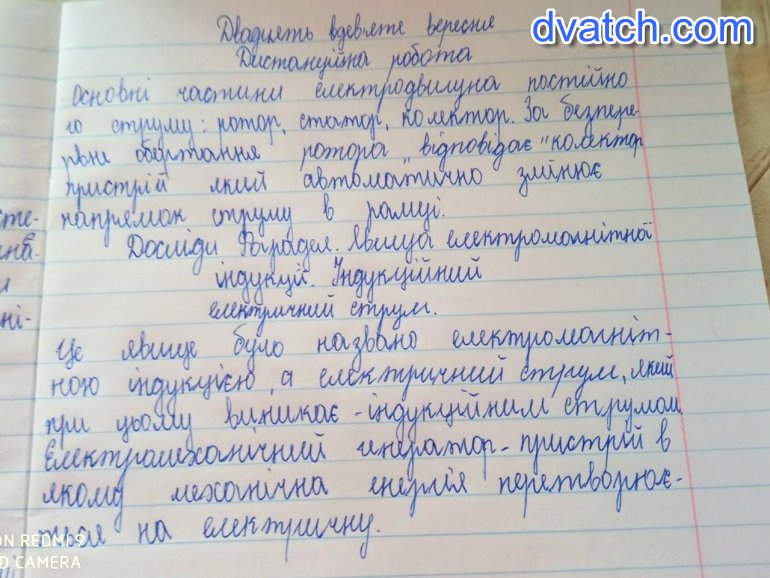 dvatch.com
Двадцять вдев'яте вересня
Дистанційна робота
Основні частини електродвигуна постійно
го струму: ротор, статор, колектор. За безпере-
рвне обертання ротора "відповідає" колектор
пристрій який автоматично змінює
напрямок струму в рамці.
Досліди Фарадея. Явища електромагнітної
індукції. Індукційний
електричний струм.
Це явище було названо електромагніт-
ною індукцією, а електричний струм, який
при цьому виникає - індукційним струмом.
Електромеханічний генератор - пристрій в
якому механічна енергія перетворює-
ться на електричну.
сте-
на-
ні-
ON REDMI 9
D CAMERA